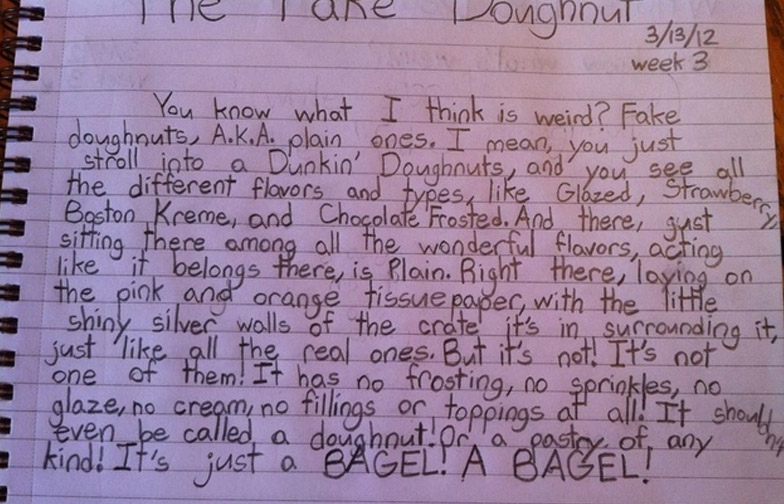 The Fake Doughnut
3/13/12
week 3
You know what I think is weird? Fake
doughnuts, A.K.A. plain ones. I mean, you just
stroll into a Dunkin' Doughnuts, and you see all
the different flavors and types, like Glazed, Strawberry,
Boston Kreme, and Chocolate Frosted. And there, just
sitting there among all the wonderful flavors, acting
like it belongs there, is Plain. Right there, laying on
the pink and orange tissue paper, with the little
shiny silver walls of the crate it's in surrounding it,
just like all the real ones. But it's not! It's not
one of them! It has no frosting, no sprinkles, no
glaze, no cream, no fillings or toppings at all! It shouldn't
even be called a doughnut! Or a pastry of any
kind! It's just a BAGEL! A BAGEL!